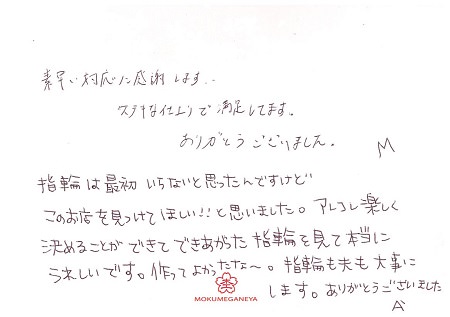 素早い対応に感謝します。
ステキな仕上りで満足してます。
ありがとうございました。
M
指輪は最初いらないと思ったんですけど
このお店を見つけてほしい!!と思いました。アレコレ楽しく
決めることができてできあがった指輪を見て本当に
うれしいです。作ってよかったな〜。指輪も夫も大事に
します。ありがとうございました
A
MOKUMEGANEYA